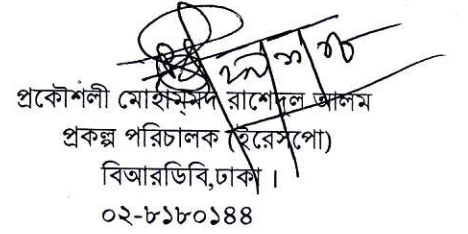 প্রকৌশলী মোহাম্মদ রাশেদুল আলম
প্রকল্প পরিচালক (ইরেসপো)
বিআরডিবি,ঢাকা ।
০২-৮১৮০১৪৪